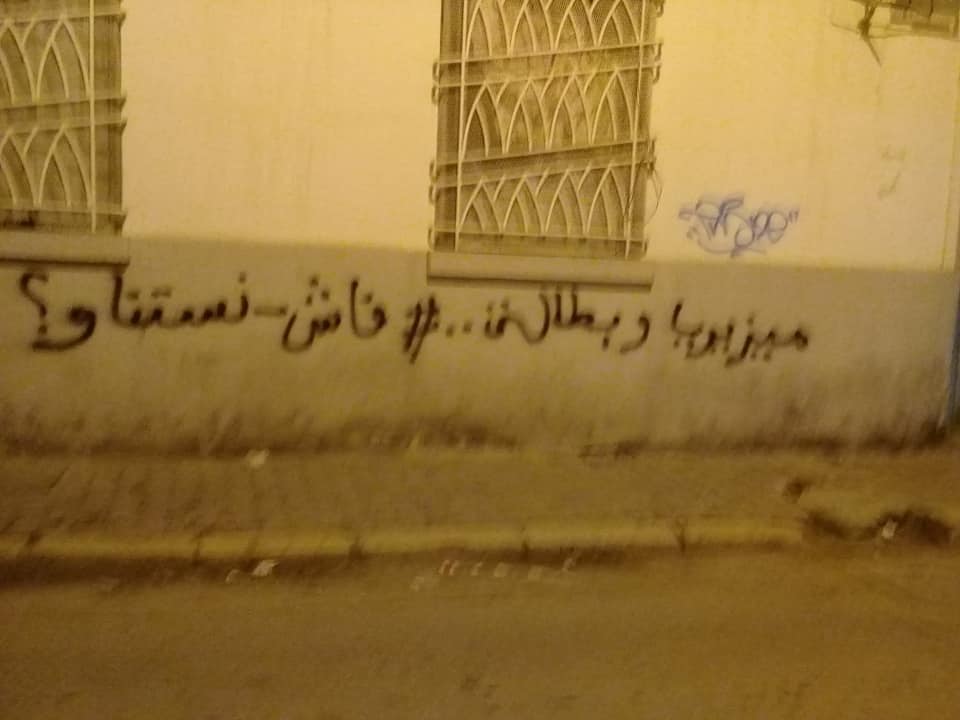 ميزيريا وبطالة.. #فاش-نستناو؟